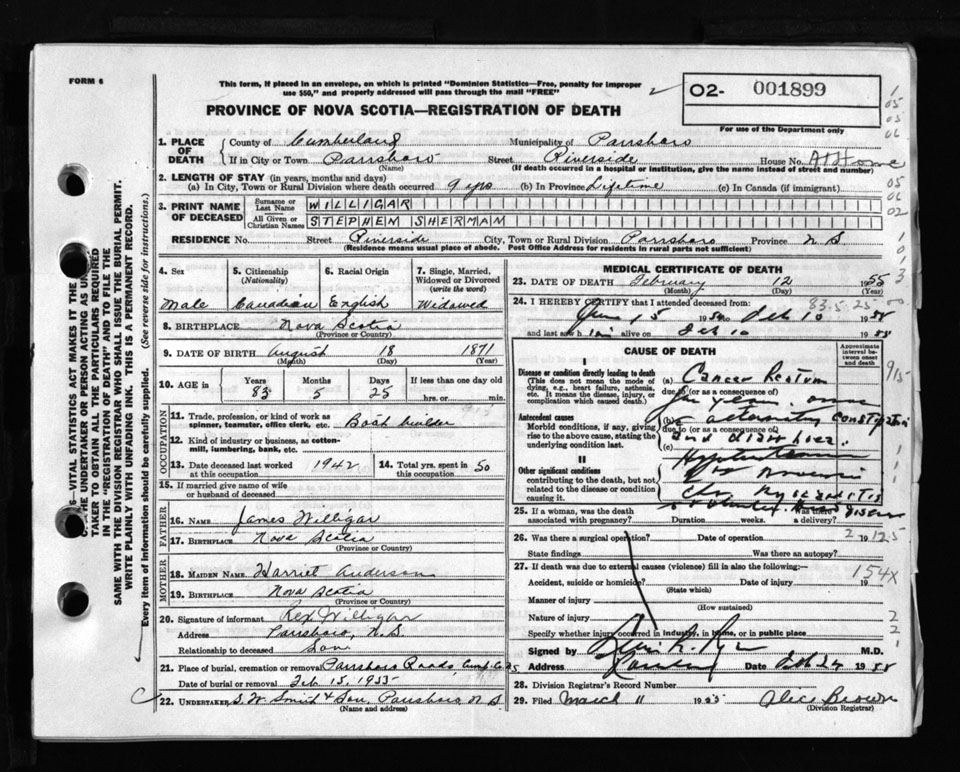 FORM 6
This form, if placed in an envelope, on which is printed "Dominion Statistics—Free, penalty for improper
use $50," and properly addressed will pass through the mail "FREE"
PROVINCE OF NOVA SCOTIA—REGISTRATION OF DEATH
O2- 001899
For use of the Department only
1. PLACE OF DEATH
County of Cumberland Municipality of Parrsboro
If in City or Town Parrsboro Street Riverside House No. At Home
(Name) (If death occurred in a hospital or institution, give the name instead of street and number)
2. LENGTH OF STAY (in years, months and days)
(a) In City, Town or Rural Division where death occurred 9 yrs (b) In Province Lifetime (c) In Canada (if immigrant)
3. PRINT NAME OF DECEASED
Surname or Last Name WILLIGAR
All Given or Christian Names STEPHEN SHERMAN
RESIDENCE No. Street Riverside City, Town or Rural Division Parrsboro Province N S
(Residence means usual place of abode. Post Office Address for residents in rural parts not sufficient)
4. Sex
Male
5. Citizenship (Nationality)
Canadian
6. Racial Origin
English
7. Single, Married, Widowed or Divorced (write the word)
Widowed
8. BIRTHPLACE Nova Scotia
(Province or Country)
9. DATE OF BIRTH August 18 1871
(Month) (Day) (Year)
10. AGE in Years Months Days If less than one day old
83 5 25 hrs. min.
OCCUPATION
11. Trade, profession, or kind of work as
spinner, teamster, office clerk, etc. Boat builder
12. Kind of industry or business, as cotton-
mill, lumbering, bank, etc.
13. Date deceased last worked at this occupation 1942
14. Total yrs. spent in this occupation 50
15. If married give name of wife
or husband of deceased
FATHER
16. NAME James Willigar
17. BIRTHPLACE Nova Scotia
(Province or Country)
MOTHER
18. MAIDEN NAME Harriet Anderson
19. BIRTHPLACE Nova Scotia
(Province or Country)
20. Signature of informant Rex Willigar
Address Parrsboro, N.S.
Relationship to deceased Son
21. Place of burial, cremation or removal Parrsboro Roads,
Date of burial or removal Feb 15, 1955
22. UNDERTAKER S.W. Smith & Son, Parrsboro N S
(Name and address)
MEDICAL CERTIFICATE OF DEATH
23. DATE OF DEATH February 12 1955
(Month) (Day) (Year)
24. I HEREBY CERTIFY that I attended deceased from 83-5-25
5 19 to Feb 10 19
and last saw him alive on Feb 10 19
CAUSE OF DEATH
Approximate interval between onset and death
I
Disease or condition directly leading to death
(This does not mean the mode of
dying, e.g., heart failure, asthenia,
etc. It means the disease, injury, or
complication which caused death.)
(a) Cancer Rectum
due to (or as a consequence of)
Antecedent causes
Morbid conditions, if any, giving
rise to the above cause, stating the
underlying condition last.
(b) alternating constipation
due to (or as a consequence of)
and diarrhoea.
(c)
II
Other significant conditions
contributing to the death, but not
related to the disease or condition
causing it.
Hypertension
Myocarditis
25. If a woman, was the death Was there
associated with pregnancy? Duration weeks. a delivery?
26. Was there a surgical operation? Date of operation 19
State findings Was there an autopsy?
27. If death was due to external causes (violence) fill in also the following:— 154X
Accident, suicide or homicide? Date of injury 19
(State which)
Manner of injury
(How sustained)
Nature of injury
Specify whether injury occurred in industry, in home, or in public place
Signed by M.D.
Address Date Feb 24 19
28. Division Registrar's Record Number
29. Filed March 11 19 Alice Brown
(Division Registrar)
TAKER TO OBTAIN ALL THE PARTICULARS REQUIRED
IN THE "REGISTRATION OF DEATH" AND TO FILE THE
SAME WITH THE DIVISION REGISTRAR WHO SHALL ISSUE THE BURIAL PERMIT.
WRITE PLAINLY WITH UNFADING INK. THIS IS A PERMANENT RECORD.
Every item of information should be carefully supplied. (See reverse side for instructions.)